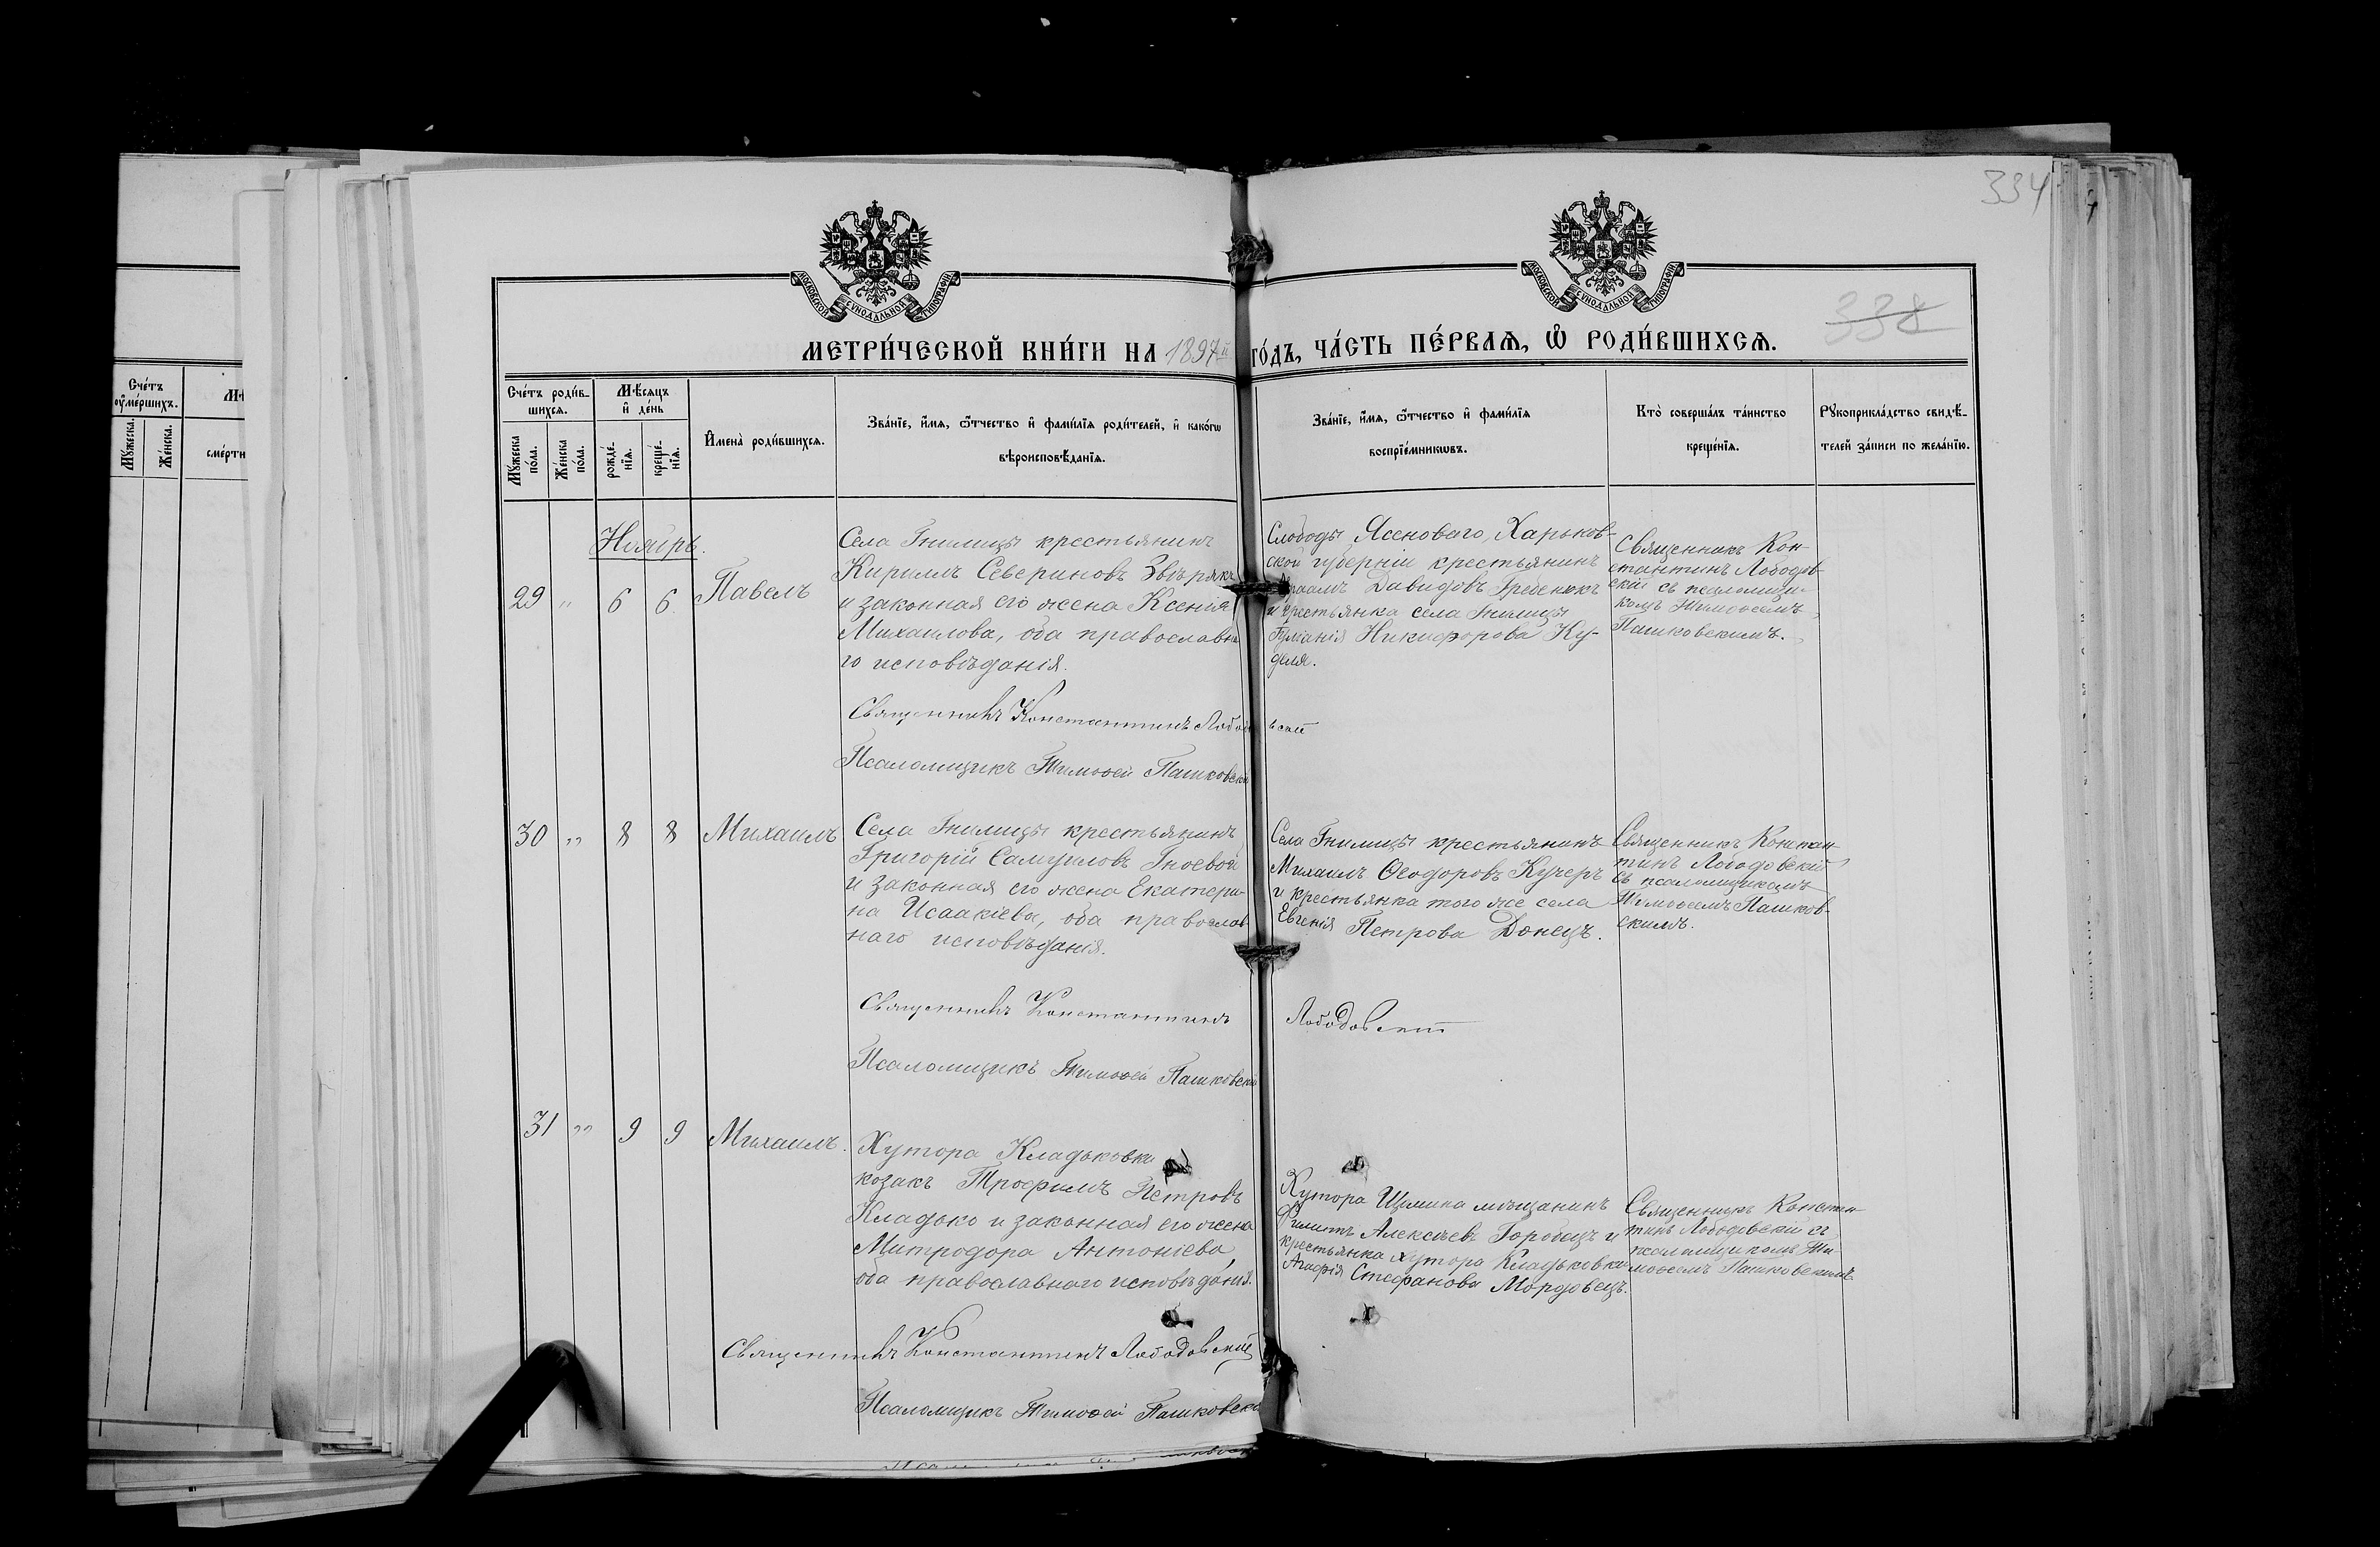 334
338
МОСКОВСКОЙ СУНОДАЛЬНОЙ ТИПОГРАФІИ
МОСКОВСКОЙ СУНОДАЛЬНОЙ ТИПОГРАФІИ
МЕТРИ́ЧЕСКОЙ КНИ́ГИ НА 1897й ГО́ДЪ, ЧА́СТЬ ПЕ́РВАѦ, Ѡ҆ РОДИ́ВШИХСѦ.
Сче́тъ
ᲂу҆ме́ршихъ.
Мꙋ́жеска.
Же́нска.
сме́рти
Сче́тъ роди́в-
шихсѧ.
Мꙋ́жеска
по́ла.
Же́нска
по́ла.
Мѣ́сѧцъ
и҆ де́нь
рожде́-
нїѧ.
креще́-
нїѧ.
И҆мена̀ роди́вшихсѧ.
Зва́нїе, и҆́мѧ, ѻ҆́тчество и҆ фами́лїѧ роди́телей, и҆ како́гѡ
вѣроисповѣ́данїѧ.
Зва́нїе, и҆́мѧ, ѻ҆́тчество и҆ фами́лїѧ
воспрїе́мникѡвъ.
Кто̀ соверша́лъ та́инство
креще́нїѧ.
Рꙋкоприкла́дство свидѣ́-
телей за́писи по жела́нїю.
Ноябрь.
29 " 6 6 Павелъ
Села Гнилицы крестьянинъ
Кириллъ Севериновъ Звѣрякъ
и законная его жена Ксенія
Михаилова, оба православна-
го исповѣданія.
Слободы Ясеноваго, Харьков-
ской губерніи крестьянинъ
Давидовъ Гребенюкъ
и крестьянка села Гнилицы
Никифорова Ку-
деля.
Священникъ Кон-
стантинъ Лободов-
скій съ псаломщи-
комъ Тимоѳеемъ
Пашковскимъ.
Священникъ Константинъ Лободовскій
Псаломщикъ Тимоѳей Пашковскій
30 " 8 8 Михаилъ
Села Гнилицы крестьянинъ
Григорій Самуиловъ Гноевой
и законная его жена Екатери-
на Исаакіева, оба православ-
наго исповѣданія.
Села Гнилицы крестьянинъ
Михаилъ Ѳеодоровъ Кучеръ
и крестьянка того же села
Евгенія Петрова Донецъ.
Священникъ Констан-
тинъ Лободовскій
съ псаломщикомъ
Тимоѳеемъ Пашков-
скимъ.
Священникъ Константинъ Лободовскій
Псаломщикъ Тимоѳей Пашковскій
31 " 9 9 Михаилъ.
Хутора Кладьковки
козакъ Трофимъ Петровъ
Кладько и законная его жена
Митродора Антоніева,
оба православнаго исповѣданія.
Хутора мѣщанинъ
Филиппъ Алексѣевъ Горобецъ и
крестьянка хутора Кладьковки
Агафія Стефанова Мордовецъ.
Священникъ Констан-
тинъ Лободовскій съ
псаломщикомъ Ти-
моѳеемъ Пашковскимъ
Священникъ Константинъ Лободовскій
Псаломщикъ Тимоѳей Пашковскій